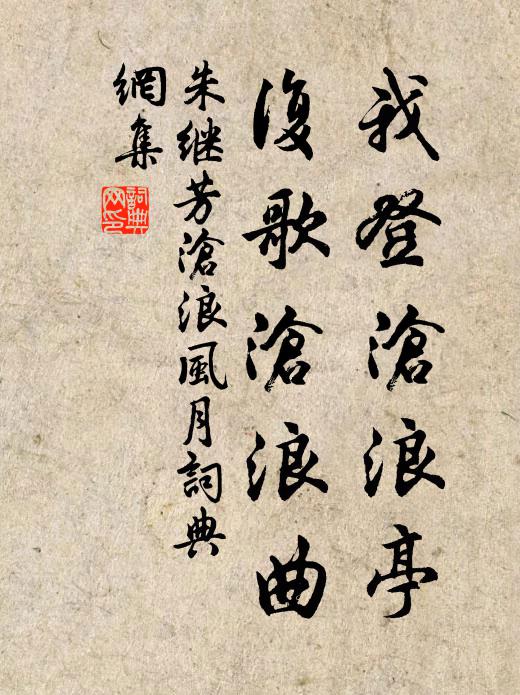 我登滄浪亭
復歌滄浪曲
朱继芳滄浪風月詞典
網集
詞典網印